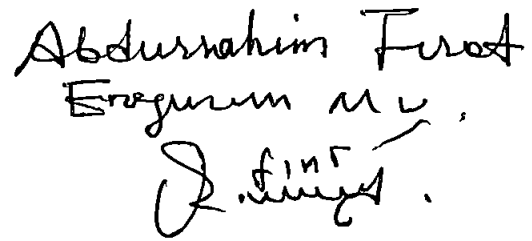 Abdurrahim Fırat
Erzurum M v.